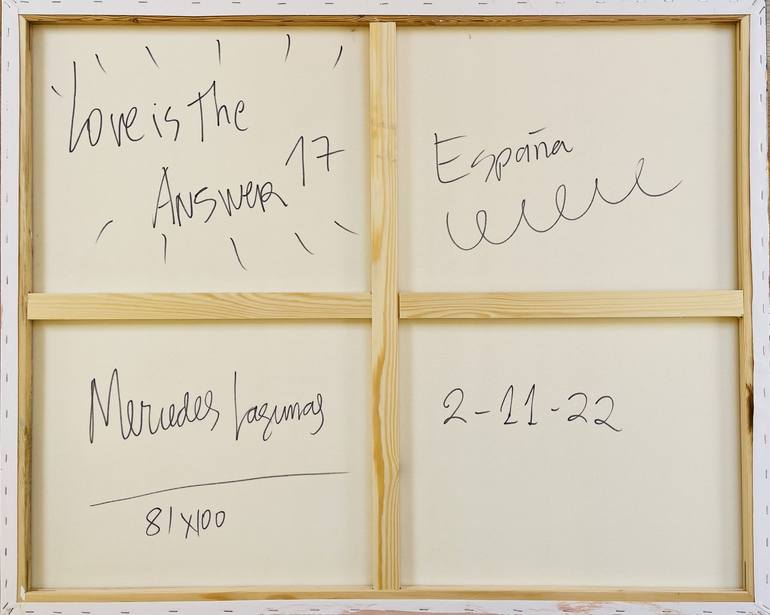 Love is The
Answer 17
España
Mercedes Lagunas
81x100
2-11-22